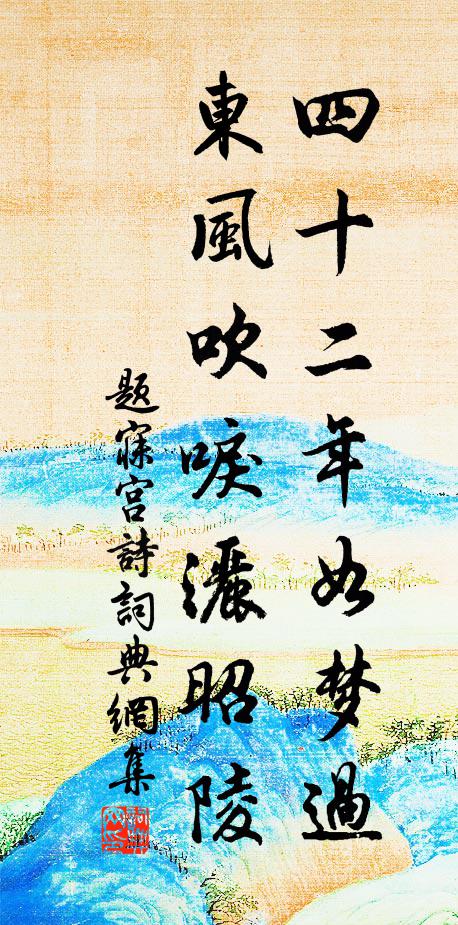 四十二年如梦過
東風吹唳灑昭陵
题寐宫詩詞典網集